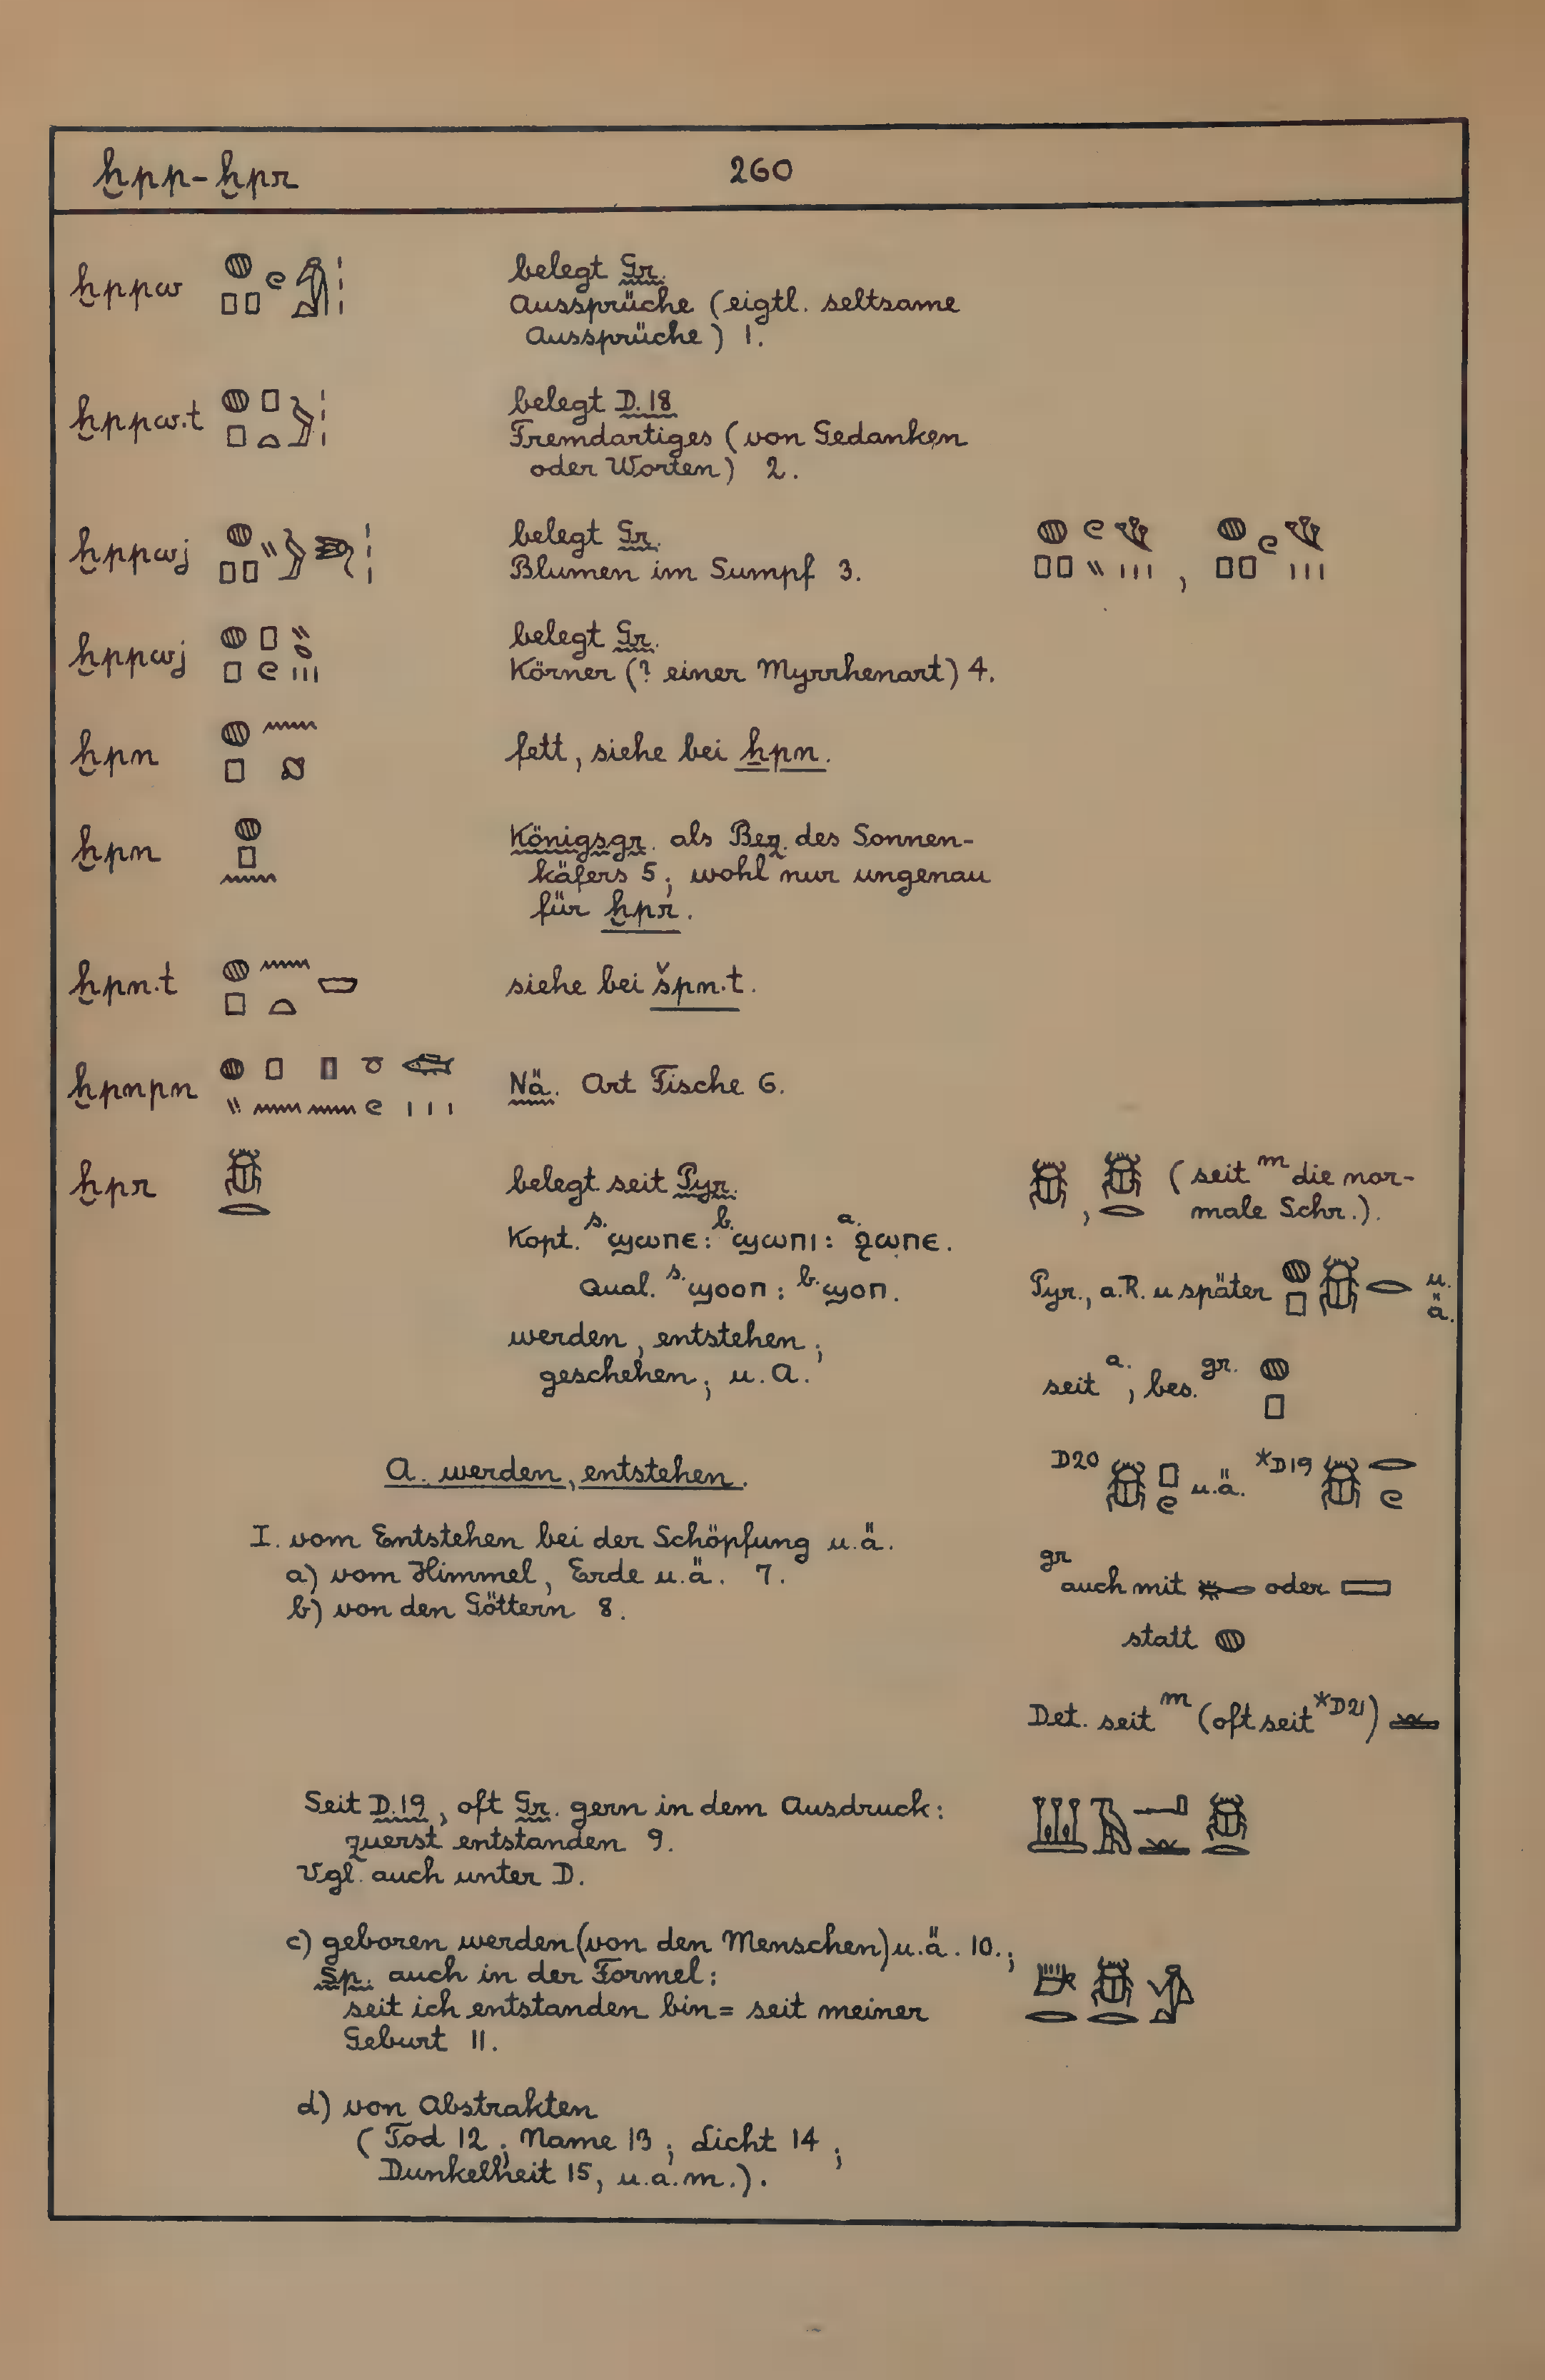 ḫpp-ḫpr 260
ḫppw belegt Gr.
Aussprüche (eigtl. seltsame
Aussprüche) 1.
ḫppw.t belegt D.18
Fremdartiges (von Gedanken
oder Worten) 2.
ḫppwj belegt Gr.
Blumen im Sumpf 3.
,
ḫppwj belegt Gr.
Körner (? einer Myrrhenart) 4.
ḫpn fett, siehe bei ẖpn.
ḫpn Königsgr. als Bez. des Sonnen-
käfers 5; wohl nur ungenau
für ḫpr.
ḫpn.t siehe bei špn.t.
ḫpnpn Nä. Art Fische 6.
ḫpr 𓆣𓂋 belegt seit Pyr.
Kopt. s. ϣωπε: b. ϣωπι: a. ϩωπε.
Qual. s. ϣοοπ: b. ϣοπ.
werden, entstehen;
geschehen; u. A.
𓆣, 𓆣𓂋 (seit m die nor-
male Schr.).
Pyr., a.R. u später 𓐍𓊪𓆣𓂋 u. ä.
seit a., bes. gr. 𓐍𓊪
D20 𓆣𓊪𓏲 u.ä. *D19 𓆣𓂋𓏲
gr auch mit 𓄡 oder 𓈙
statt 𓐍
Det. seit m (oft seit *D21) 𓏛
A. werden, entstehen.
I. vom Entstehen bei der Schöpfung u.ä.
a) vom Himmel, Erde u.ä. 7.
b) von den Göttern 8.
Seit D.19, oft Gr. gern in dem Ausdruck:
zuerst entstanden 9.
Vgl. auch unter D.
c) geboren werden (von den Menschen) u.ä. 10.;
Sp. auch in der Formel:
seit ich entstanden bin = seit meiner
Geburt 11.
d) von Abstrakten
(Tod 12; Name 13; Licht 14;
Dunkelheit 15, u.a.m.).